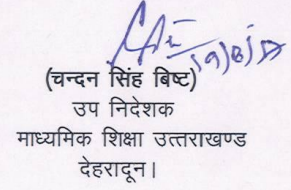 (चन्दन सिंह बिष्ट)
उप निदेशक
माध्यमिक शिक्षा उत्तराखण्ड
देहरादून।